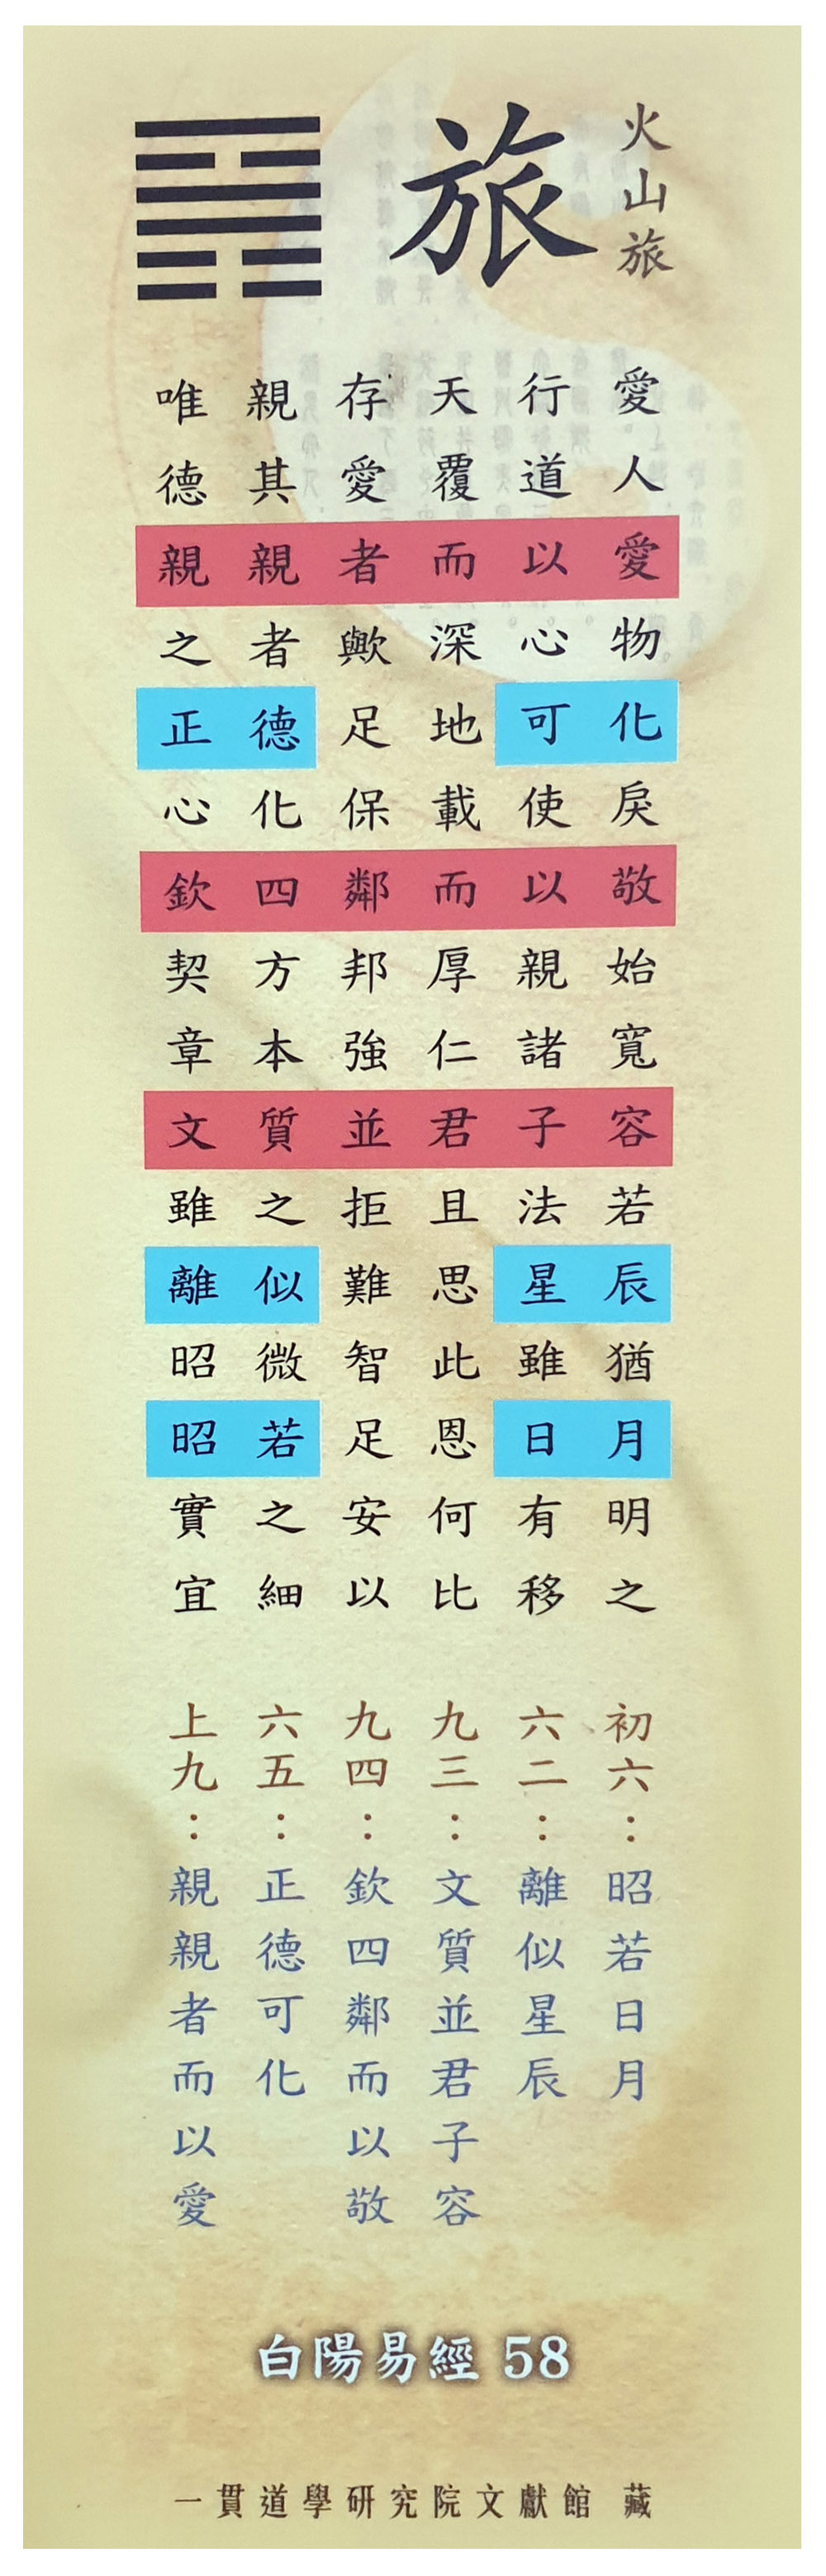 火山旅
旅
愛人愛物化戾敬始寬容若辰猶月明之
行道以心可使以親諸子法星雖日有移
天覆而深地載而厚仁君且思此恩何比
存愛者歟足保鄰邦強並拒難智足安以
親其親者德化四方本質之似微若之細
唯德親之正心欽契章文雖離昭昭實宜
初六：昭若日月
六二：離似星辰
九三：文質並君子容
九四：欽四鄰而以敬
六五：正德可化
上九：親親者而以愛
白陽易經 58
一貫道學研究院文獻館 藏